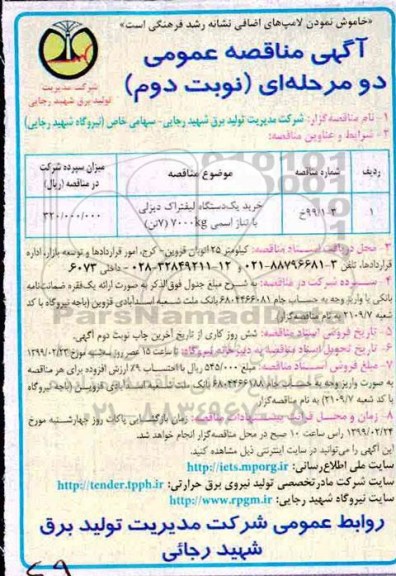 «خاموش نمودن لامپ‌های اضافی نشانه رشد فرهنگی است»
آگهی مناقصه عمومی
دو مرحله‌ای (نوبت دوم)
شرکت مدیریت
تولید برق شهید رجایی
۱- نام مناقصه‌گزار: شرکت مدیریت تولید برق شهید رجایی- سهامی خاص (نیروگاه شهید رجایی)
۲- شرایط و عناوین مناقصه:
ردیف شماره مناقصه موضوع مناقصه میزان سپرده شرکت در مناقصه (ریال)
۱ ۹۹/۱-۳خ خرید یک‌دستگاه لیفتراک دیزلی با تناژ اسمی ۷۰۰۰kg (۷تن) ۳۲۰/۰۰۰/۰۰۰
۳- محل دریافت اسناد مناقصه: کیلومتر ۲۵ اتوبان قزوین - کرج، امور قراردادها و توسعه بازار، اداره
قراردادها، تلفن ۳-۸۸۷۹۶۶۸۱-۰۲۱ و ۱۲-۳۲۸۴۹۲۱۱-۰۲۸ - داخلی ۶۰۷۳
۴- سپرده شرکت در مناقصه: به شرح مبلغ جدول فوق‌الذکر به صورت ارائه یک‌فقره ضمانت‌نامه
بانکی یا واریز وجه به حساب جام ۶۸۰۴۴۶۶۰۸۱ بانک ملت شعبه اسدآبادی قزوین (باجه نیروگاه با کد
شعبه ۲۱۰۹/۷ به نام مناقصه‌گزار)
۵- تاریخ فروش اسناد مناقصه: شش روز کاری از تاریخ آخرین چاپ نوبت دوم آگهی.
۶- تاریخ تحویل اسناد مناقصه به دبیرخانه نیروگاه: تا ساعت ۱۵ عصر روز سه‌شنبه مورخ ۱۳۹۹/۰۲/۲۳
۷- مبلغ فروش اسناد مناقصه: مبلغ ۵۴۵/۰۰۰ ریال با احتساب ۹٪ ارزش افزوده برای هر مناقصه
به صورت واریز وجه به حساب جام ۶۸۰۴۴۶۶۱۸۸ بانک ملت شعبه اسدآبادی قزوین (باجه نیروگاه
با کد شعبه ۲۱۰۹/۷) به نام مناقصه‌گزار
۸- زمان و محل پیشنهادات مناقصه: زمان بازگشایی پاکات روز چهارشنبه مورخ
۱۳۹۹/۰۲/۲۴ راس ساعت ۱۰ صبح در محل مناقصه‌گزار انجام خواهد شد.
این آگهی را می‌توانید در سایت اینترنتی ذیل مشاهده کنید.
سایت ملی اطلاع‌رسانی: http://iets.mporg.ir
سایت شرکت مادرتخصصی تولید نیروی برق حرارتی: http://tender.tpph.ir
سایت نیروگاه شهید رجایی: http://www.rpgm.ir
روابط عمومی شرکت مدیریت تولید برق
شهید رجائی